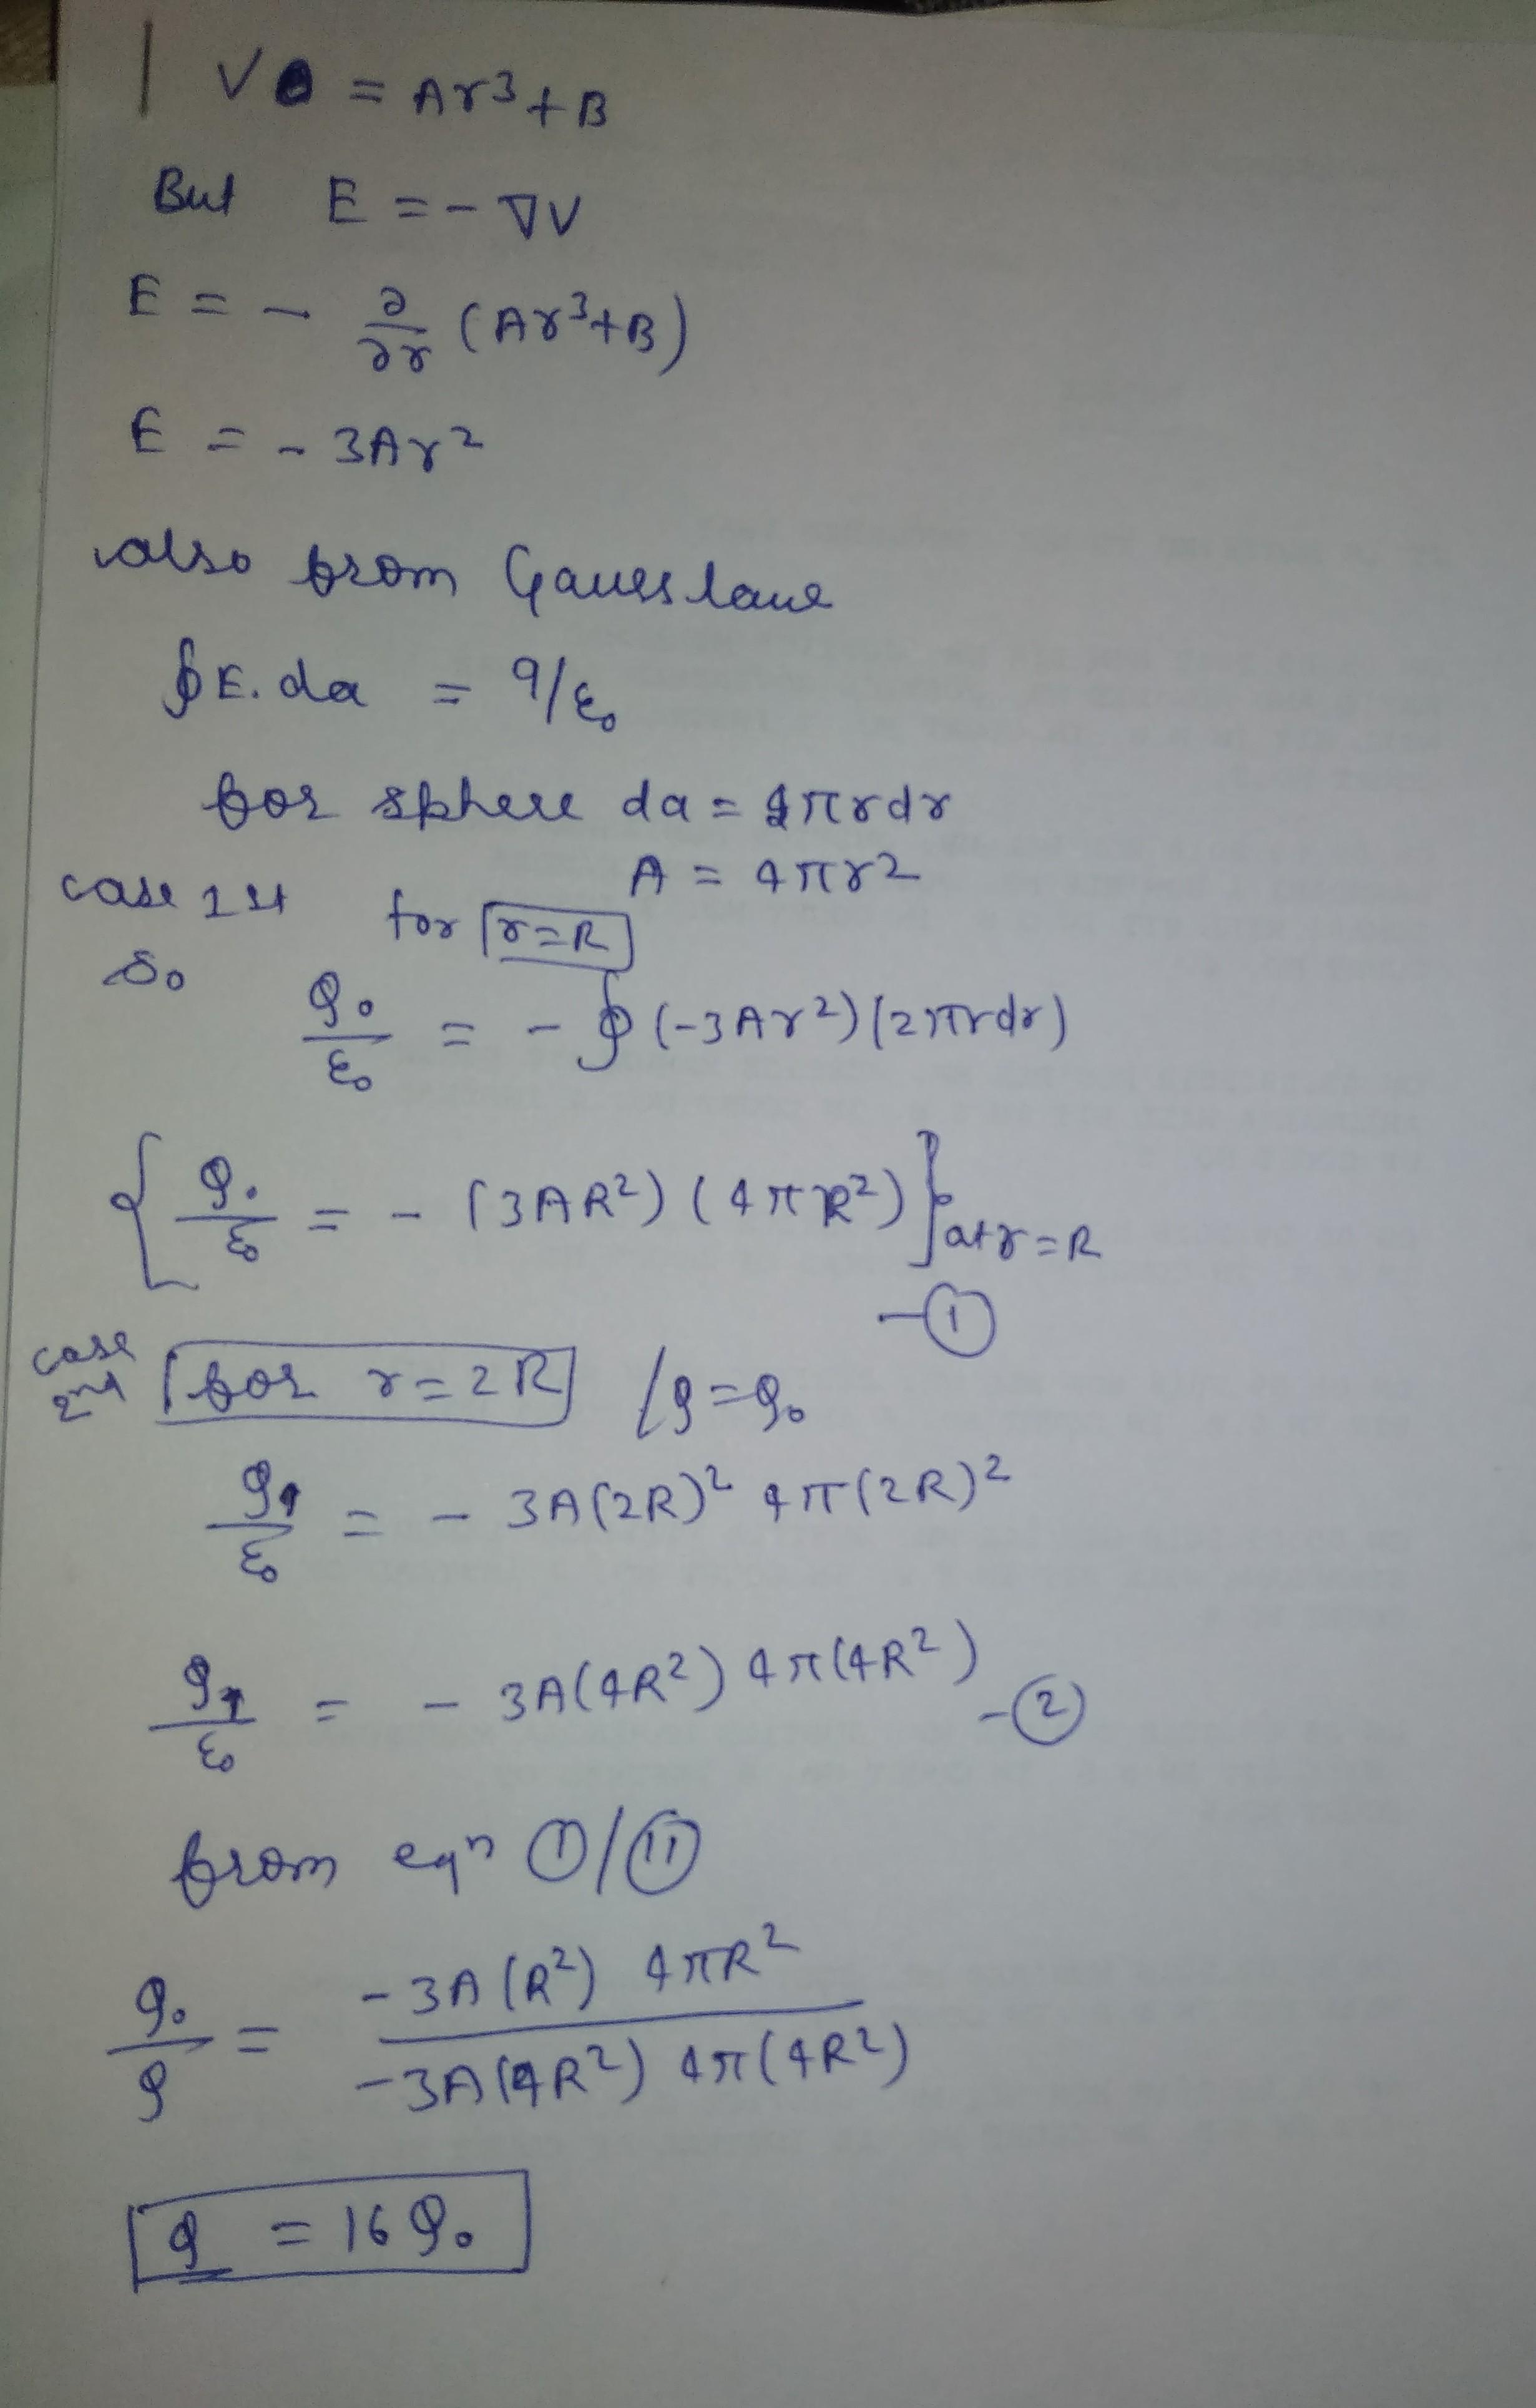 V = Ar³ + B
But E = - ∇V
E = - ∂/∂r (Ar³+B)
E = - 3Ar²
also from Gauss lawe
∮E.da = q/ε₀
for sphere da = 4πrdr
A = 4πr²
case 1st for r=R
So
Q₀/ε₀ = - ∮(-3Ar²)(2πrdr)
{Q₀/ε₀ = - (3AR²)(4πR²)} at r=R
-①
case 2nd for r=2R /Q=Q₀
Q/ε₀ = - 3A(2R)² 4π(2R)²
Q/ε₀ = - 3A(4R²) 4π(4R²) -②
from eqⁿ ①/⑪
Q₀/Q = -3A(R²) 4πR² / -3A(4R²) 4π(4R²)
Q = 16Q₀